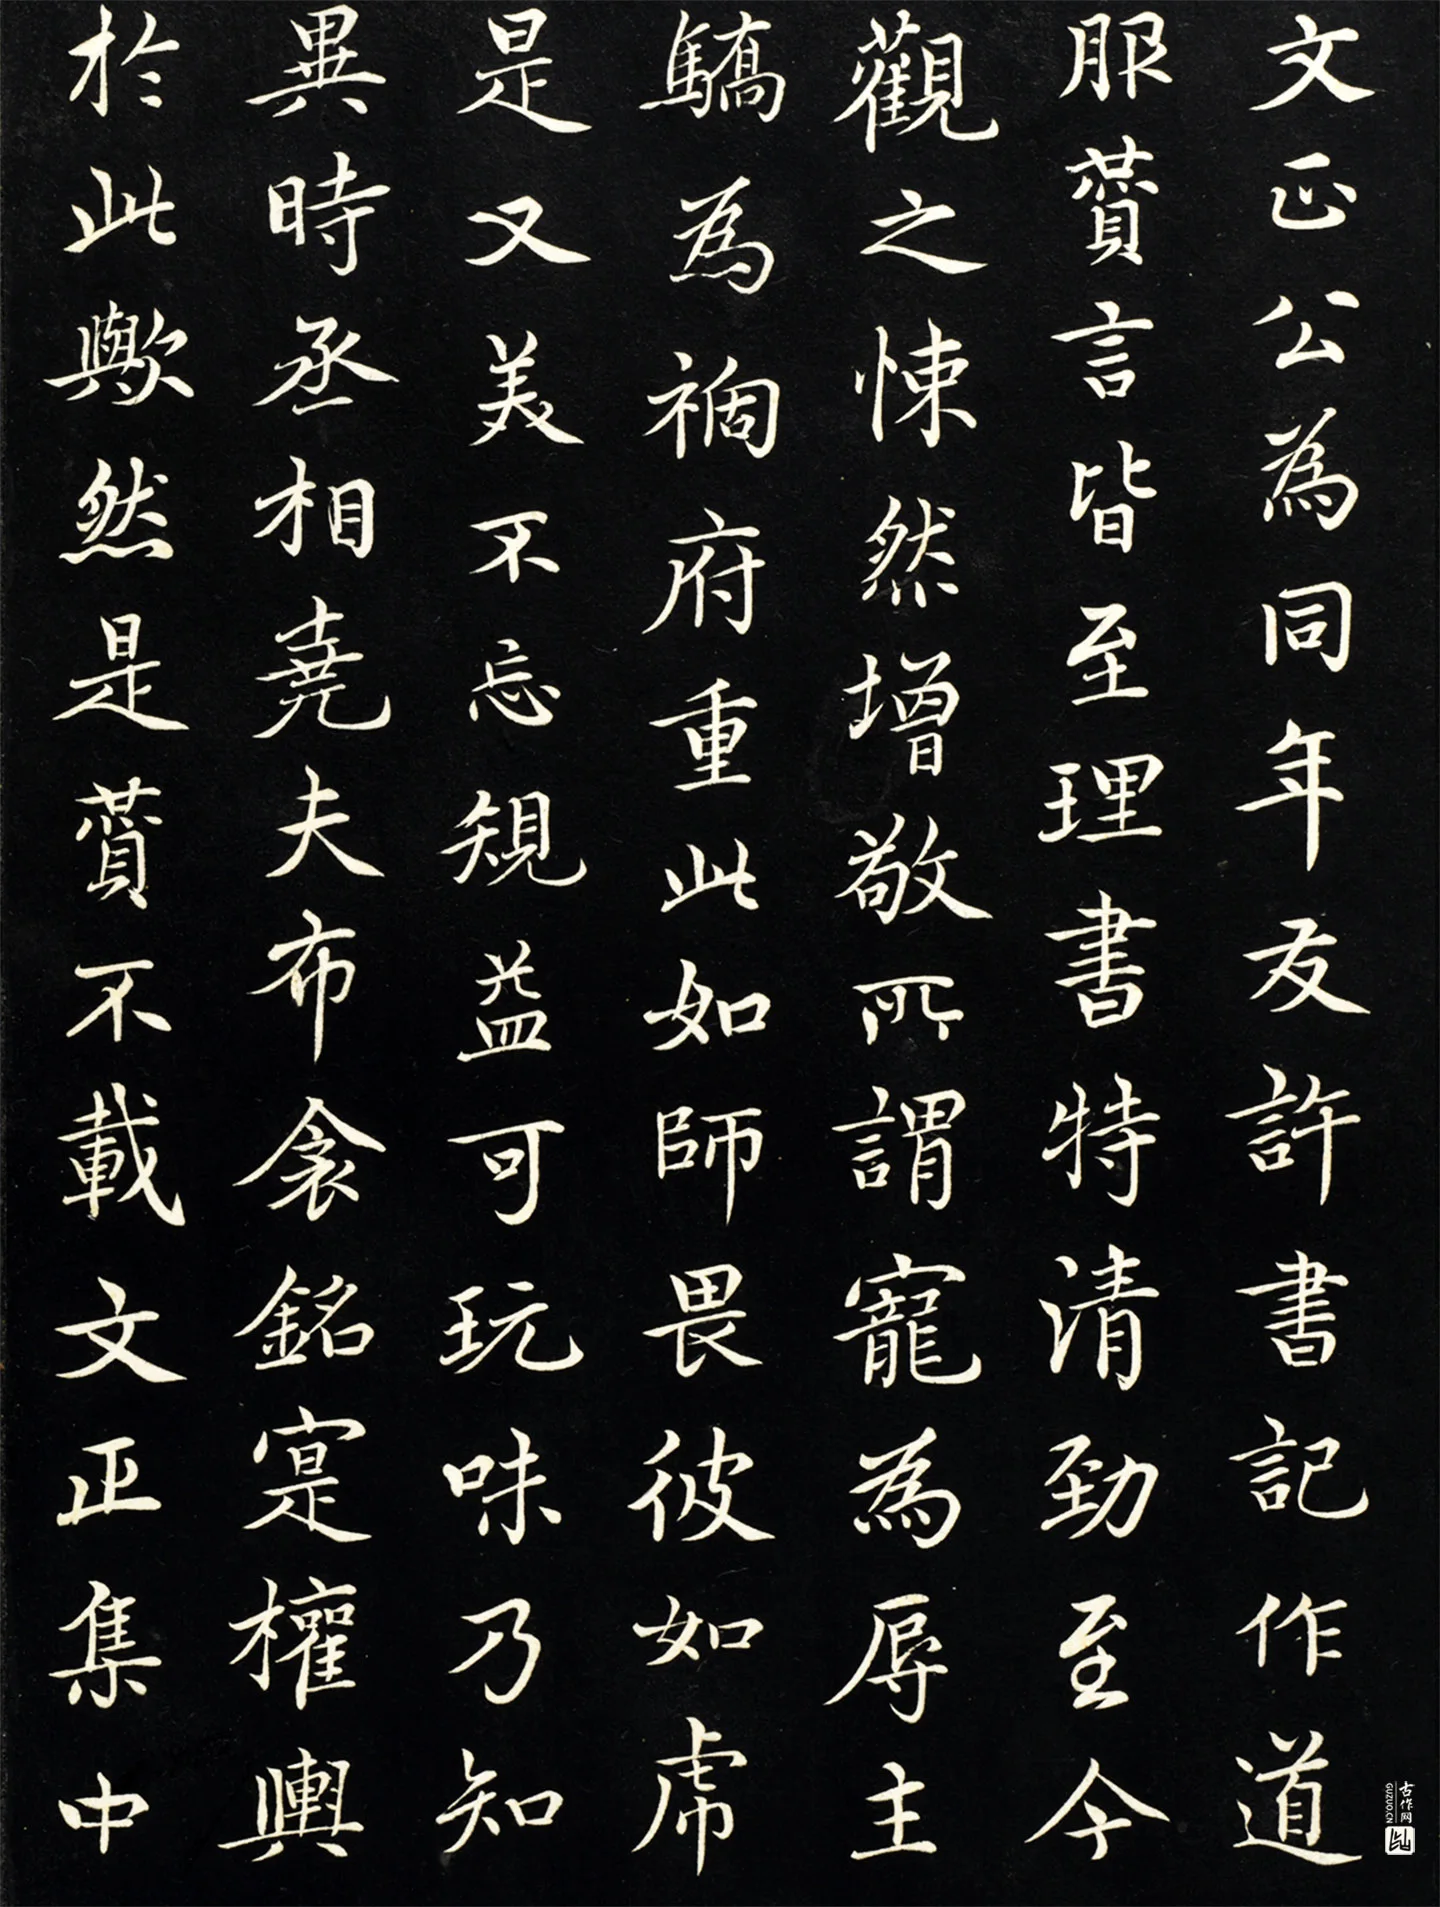 文正公為同年友許書記作道
服贊言皆至理書特清勁至今
觀之悚然增敬所謂寵為辱主
驕為禍府重此如師畏彼如虎
是又美不忘規益可玩味乃知
異時丞相堯夫布衾銘寔權輿
於此歟然是贊不載文正集中
古作网
GUZUO.CN